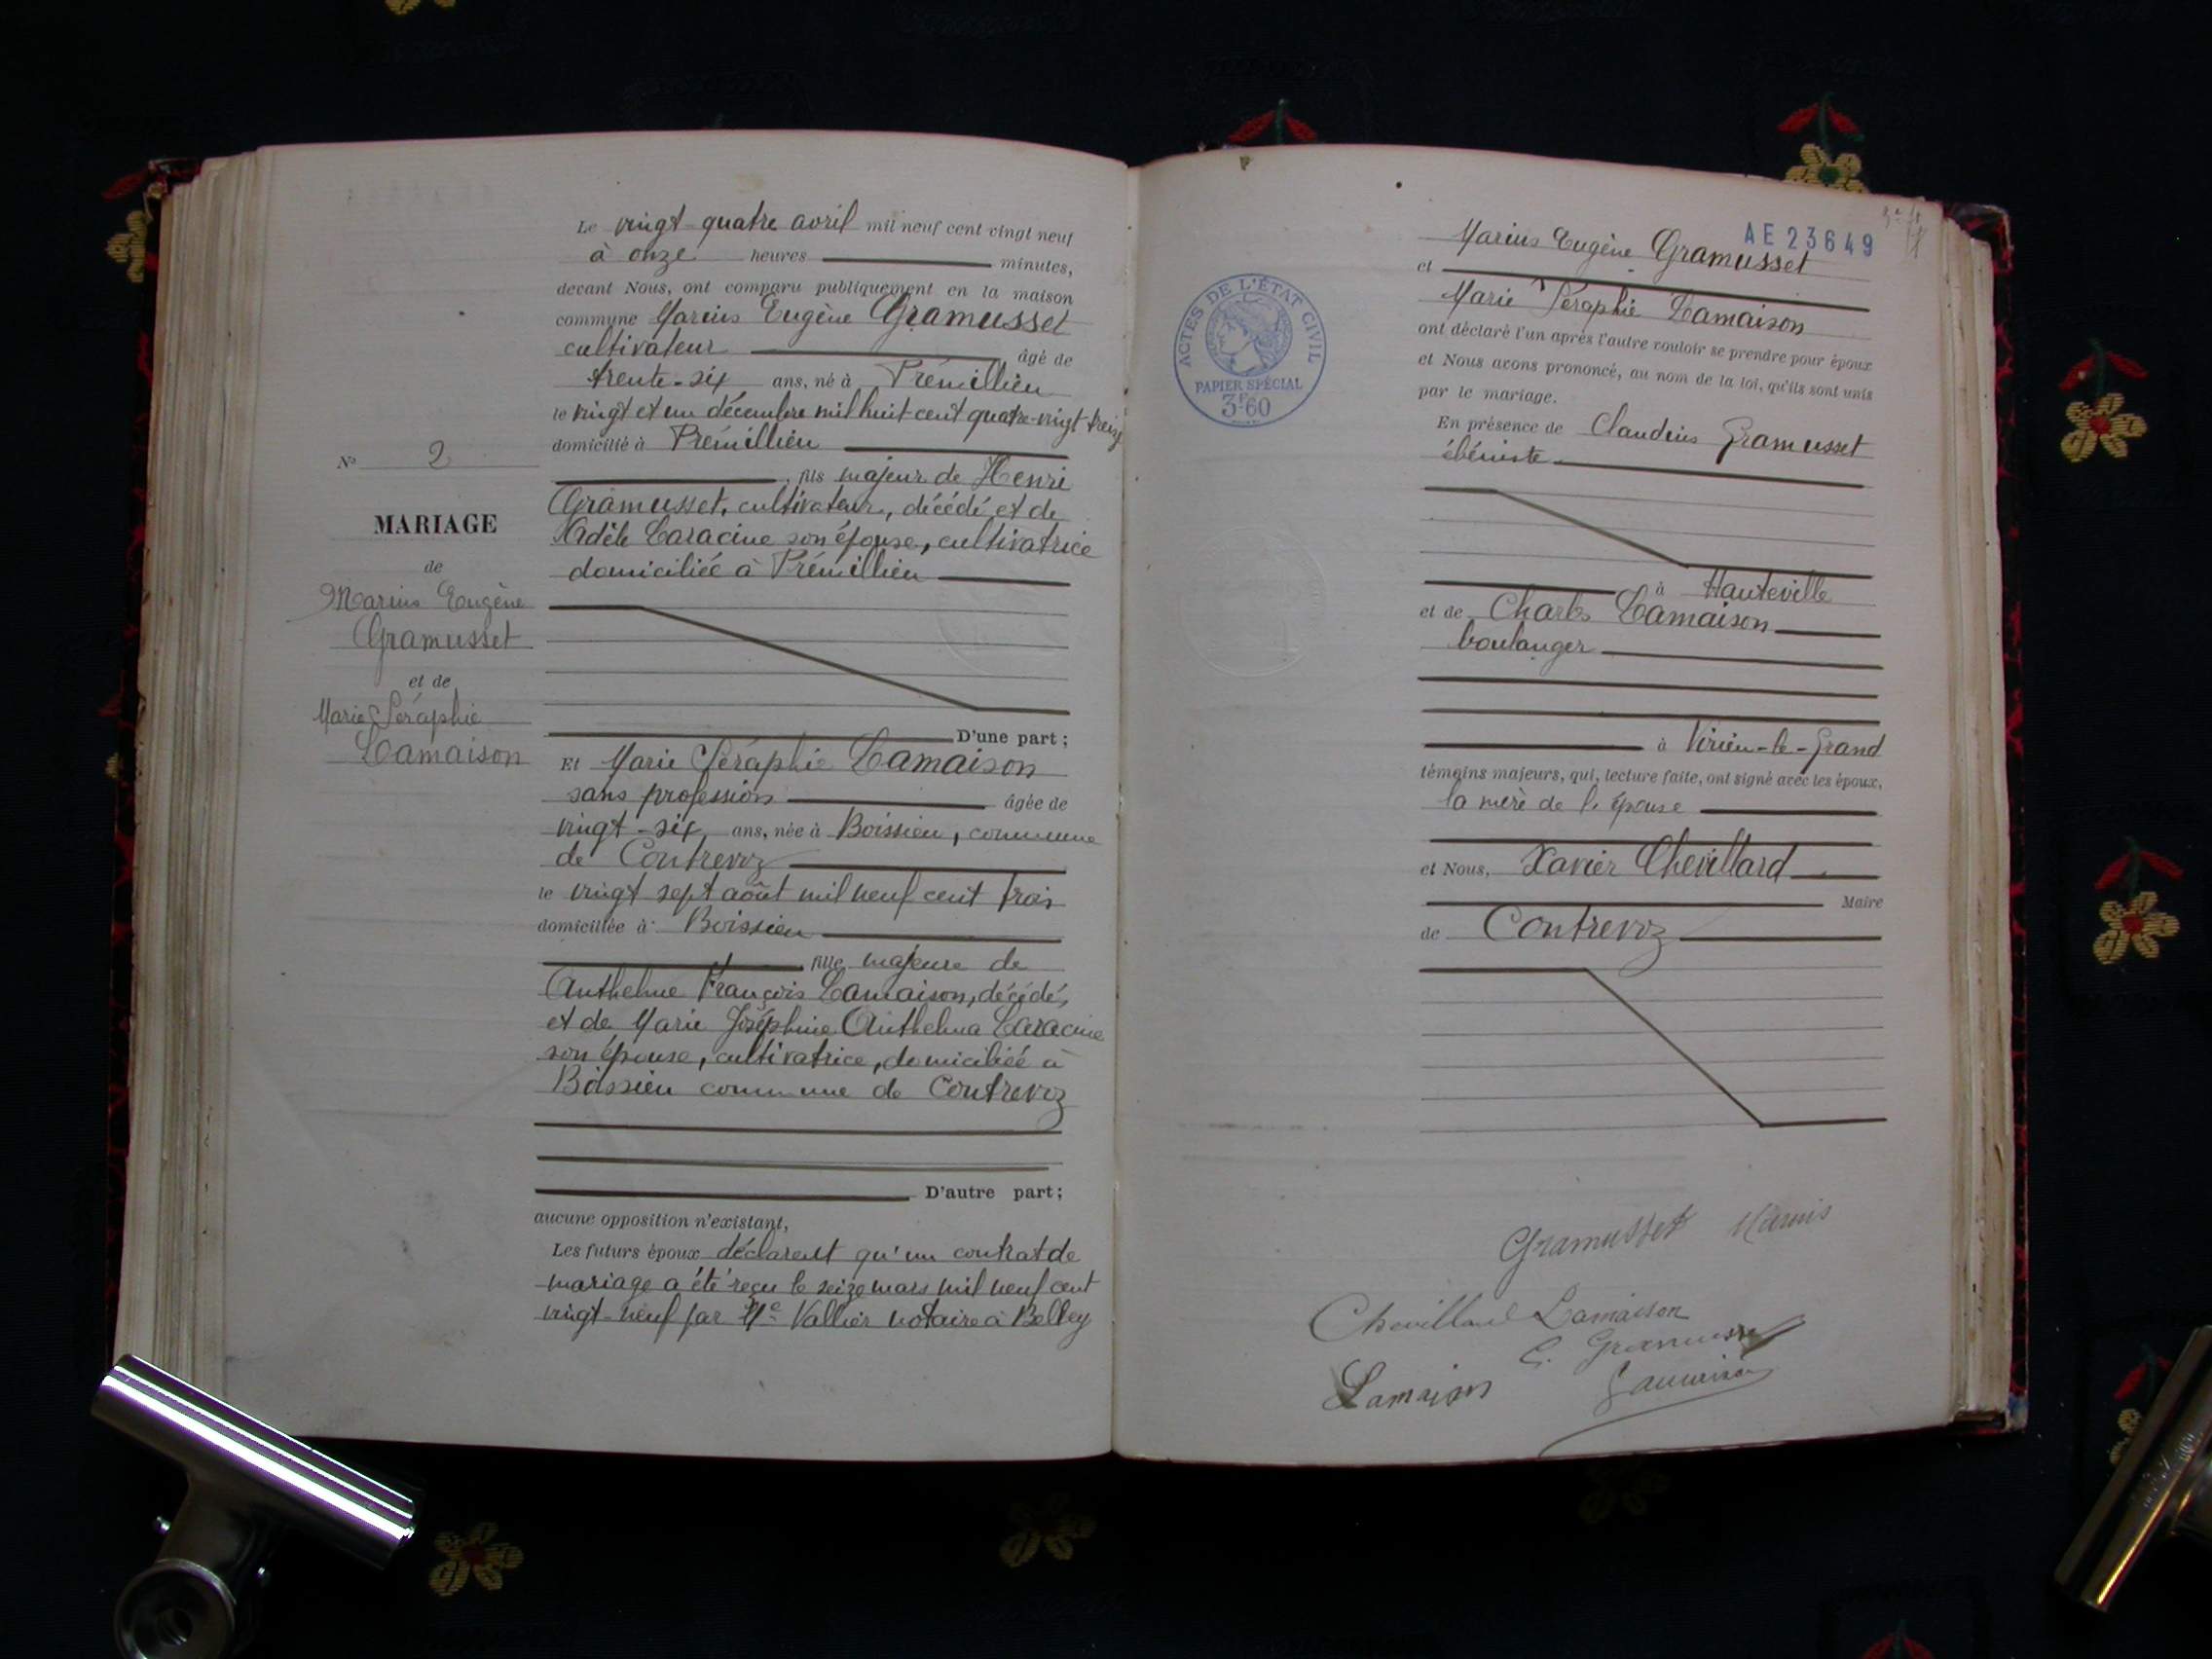 Le vingt-quatre avril mil neuf cent vingt neuf
à onze heures minutes,
devant Nous, ont comparu publiquement en la maison
commune Marius Eugène Gramusset
cultivateur âgé de
trente-six ans, né à Prémillieu
le vingt et un décembre mil huit cent quatre-vingt treize
domicilié à Prémillieu
fils majeur de Henri
Gramusset, cultivateur, décédé, et de
Adèle Laracine son épouse, cultivatrice
domiciliée à Prémillieu
D'une part;
Et Marie Séraphie Lamaison
sans profession âgée de
vingt-six ans, née à Boissieu, commune
de Contrevoz
le vingt sept août mil neuf cent trois
domiciliée à Boissieu
fille majeure de
Anthelme François Lamaison, décédé,
et de Marie Joséphine Anthelma Laracine
son épouse, cultivatrice, domiciliée à
Boissieu commune de Contrevoz
D'autre part;
aucune opposition n'existant,
Les futurs époux déclarent qu'un contrat de
mariage a été reçu le seize mars mil neuf cent
vingt-neuf par Me Vallier notaire à Belley
N° 2
MARIAGE
de
Marius Eugène
Gramusset
et de
Marie Séraphie
Lamaison
AE 23649
ACTES DE L'ÉTAT CIVIL
PAPIER SPÉCIAL
3F60
Marius Eugène Gramusset
et
Marie Séraphie Lamaison
ont déclaré l'un après l'autre vouloir se prendre pour époux
et Nous avons prononcé, au nom de la loi, qu'ils sont unis
par le mariage.
En présence de Claudius Gramusset
ébéniste
à Hauteville
et de Charles Lamaison
boulanger
à Virieu-le-Grand
témoins majeurs, qui, lecture faite, ont signé avec les époux,
la mère de l'épouse
et Nous, Xavier Chevillard
Maire
de Contrevoz
Gramusset Marius
Chevillard Lamaison
C. Gramusset
Lamaison